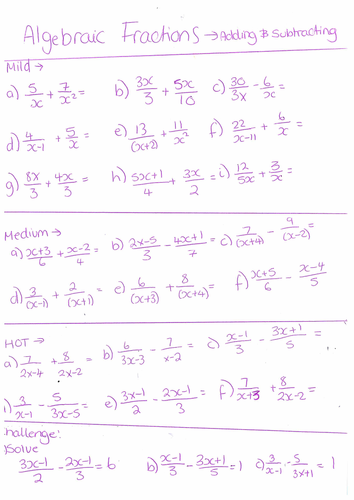 Algebraic Fractions → Adding & Subtracting
Mild →
a) 5/x + 7/x² = b) 3x/3 + 5x/10 c) 30/3x - 6/x =
d) 4/x-1 + 5/x = e) 13/(x+2) + 11/x² f) 22/x-11 + 6/x =
g) 8x/3 + 4x/3 = h) 5x+1/4 + 3x/2 = i) 12/5x + 3/x =
Medium →
a) x+3/6 + x-2/4 = b) 2x-5/3 - 4x+1/7 = c) 7/(x+4) - 9/(x-2) =
d) 3/(x-1) + 2/(x+1) = e) 6/(x+3) + 8/(x+4) = f) x+5/6 - x-4/5
HOT →
a) 7/2x-4 + 8/2x-2 = b) 6/3x-3 - 7/x-2 = c) x-1/3 - 3x+1/5 =
) 3/x-1 - 5/3x-5 = e) 3x-1/2 - 2x-1/3 = f) 7/x+3 + 8/2x-2 =
hallenge:
Solve
3x-1/2 - 2x-1/3 = 6 b) x-1/3 - 3x+1/5 = 1 c) 3/x-1 - 5/3x+1 = 1